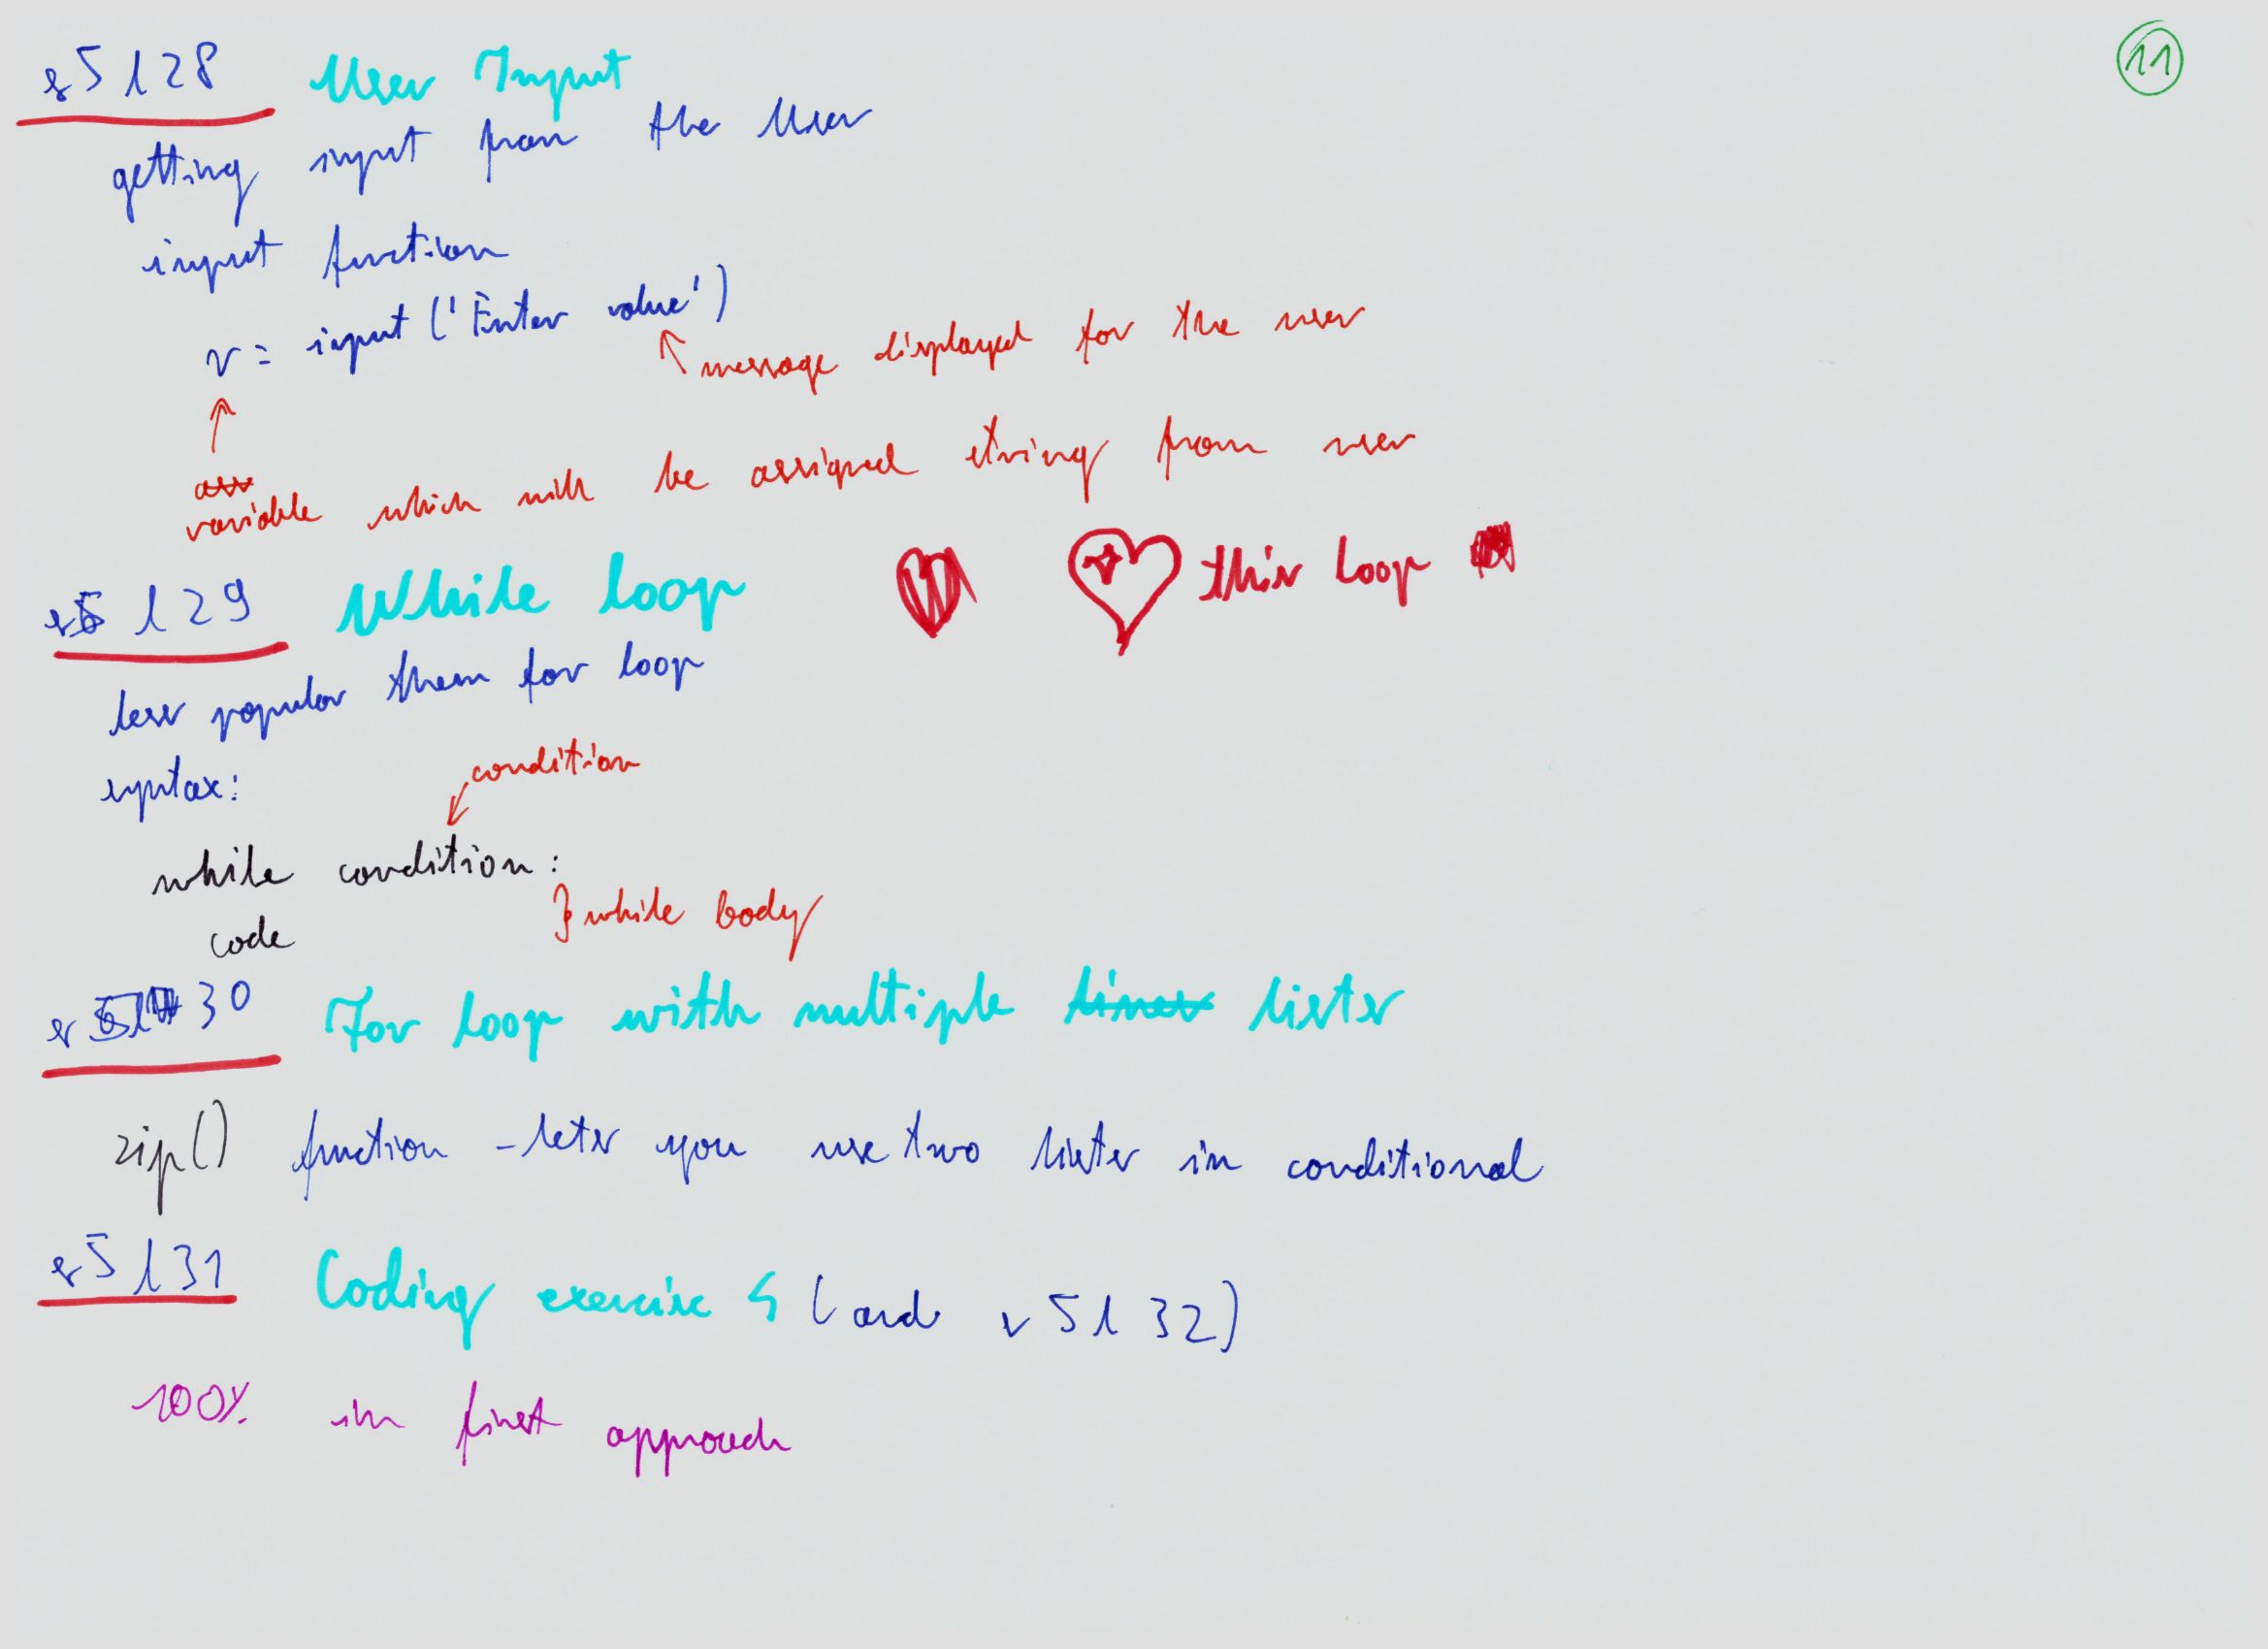 s5 l28 User Input
11
getting input from the User
input function
v = input ('Enter value')
message displayed for the user
ass
variable which will be assigned string from user
s5 l29 While loop
this loop
less popular them for loop
syntax:
condition
while condition:
code
} while body
s5 l30 For loop with multiple lines lists
zip() function - lets you use two lists in conditional
s5 l31 Coding exercise 5 (and s5 l32)
100% in first approach